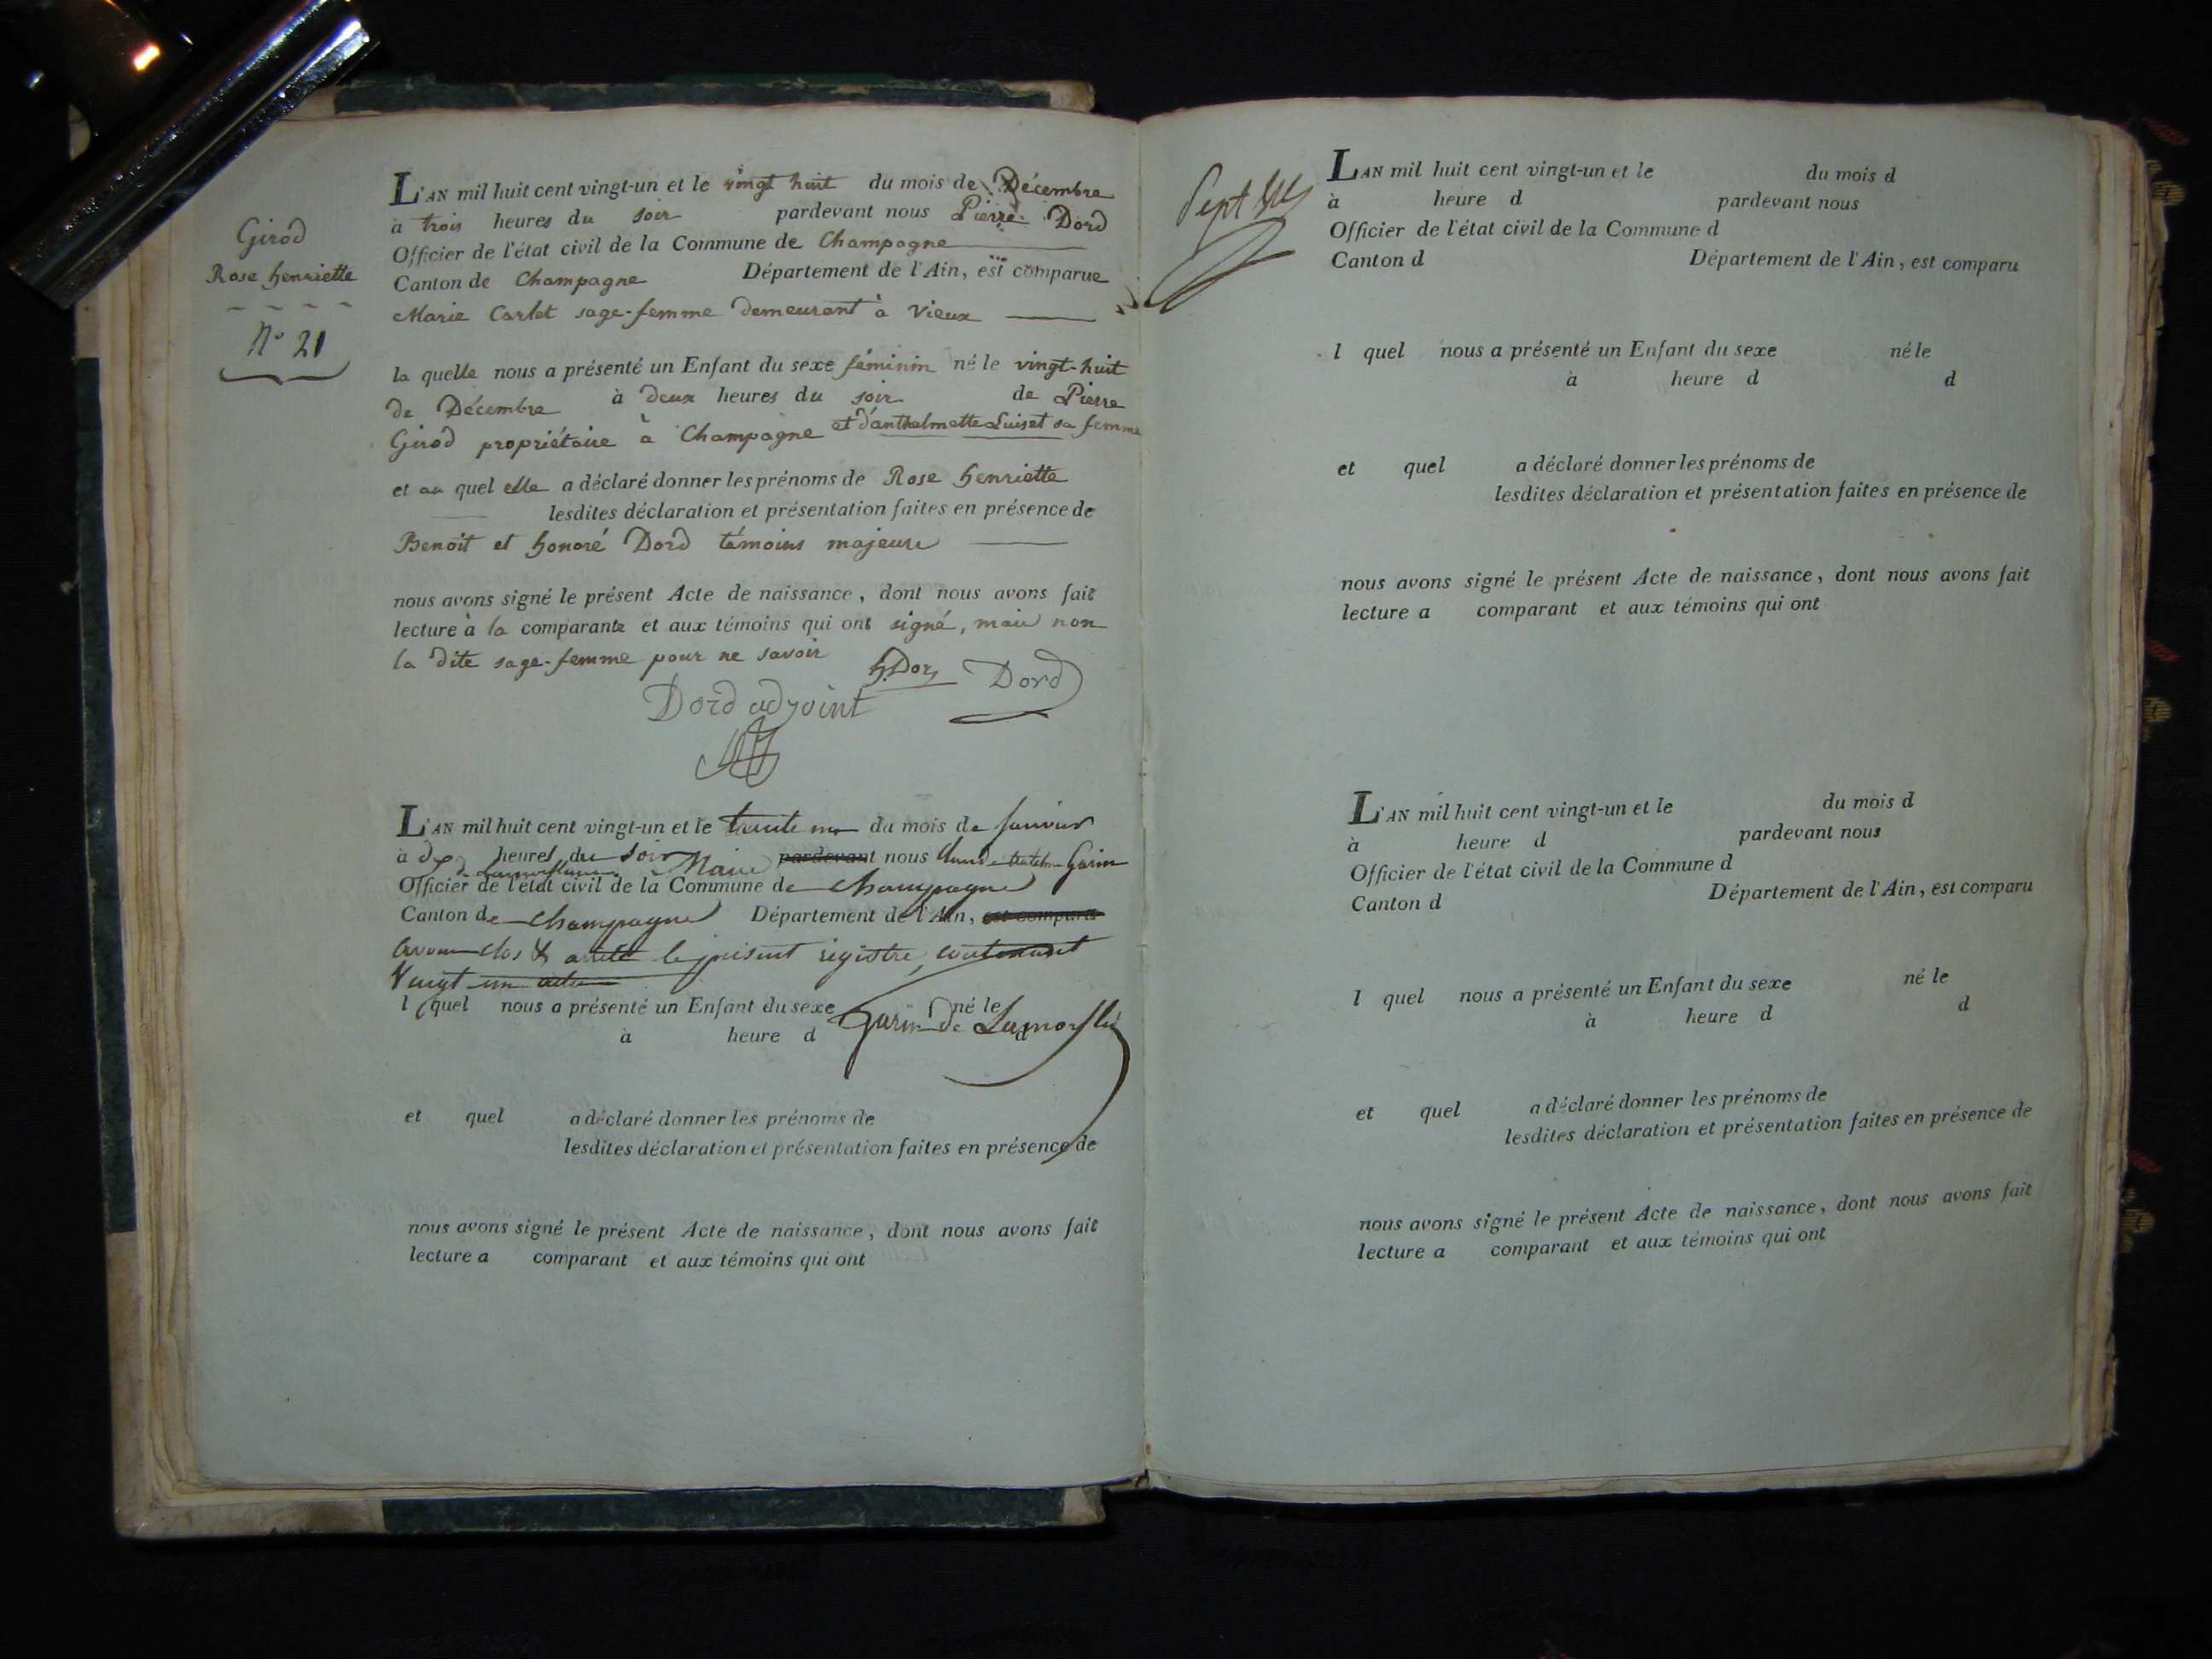 Girod
Rose henriette
N.° 21
L'AN mil huit cent vingt-un et le vingt huit du mois de Décembre
à trois heures du soir pardevant nous Pierre Dord
Officier de l'état civil de la Commune de Champagne
Canton de Champagne Département de l'Ain, est comparue
Marie Carlet sage-femme demeurant à Vieux
la quelle nous a présenté un Enfant du sexe féminin né le vingt-huit
de Décembre à deux heures du soir de Pierre
Girod propriétaire à Champagne et d'anthelmette Luiset sa femme
et au quel elle a déclaré donner les prénoms de Rose henriette
lesdites déclaration et présentation faites en présence de
Benoit et honoré Dord témoins majeurs
nous avons signé le présent Acte de naissance, dont nous avons fait
lecture à la comparante et aux témoins qui ont signé, mais non
la dite sage-femme pour ne savoir
h. Dord Dord
Dord adjoint
L'AN mil huit cent vingt-un et le trente un du mois de
à heures du soir Maire pardevant nous Garin
Officier de l'état civil de la Commune de Champagne
Canton de Champagne Département de l'Ain, est comparu
avons clos & arrêté le présent régistre, contenant
Vingt un actes
l quel nous a présenté un Enfant du sexe né le
Garin de
à heure d d
et quel a déclaré donner les prénoms de
lesdites déclaration et présentation faites en présence de
nous avons signé le présent Acte de naissance, dont nous avons fait
lecture a comparant et aux témoins qui ont
Sept
L'AN mil huit cent vingt-un et le du mois d
à heure d pardevant nous
Officier de l'état civil de la Commune d
Canton d Département de l'Ain, est comparu
l quel nous a présenté un Enfant du sexe né le
à heure d d
et quel a déclaré donner les prénoms de
lesdites déclaration et présentation faites en présence de
nous avons signé le présent Acte de naissance, dont nous avons fait
lecture a comparant et aux témoins qui ont
L'AN mil huit cent vingt-un et le du mois d
à heure d pardevant nous
Officier de l'état civil de la Commune d
Canton d Département de l'Ain, est comparu
l quel nous a présenté un Enfant du sexe né le
à heure d d
et quel a déclaré donner les prénoms de
lesdites déclaration et présentation faites en présence de
nous avons signé le présent Acte de naissance, dont nous avons fait
lecture a comparant et aux témoins qui ont